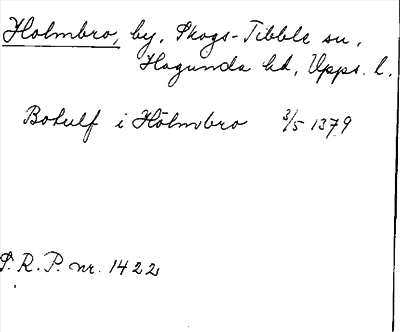 Holmbro, by, Skogs-Tibble sn,
Hagunda hd, Upps. l.
Botulf i Holmbro 3/5 1379
S.R.P. nr. 1422